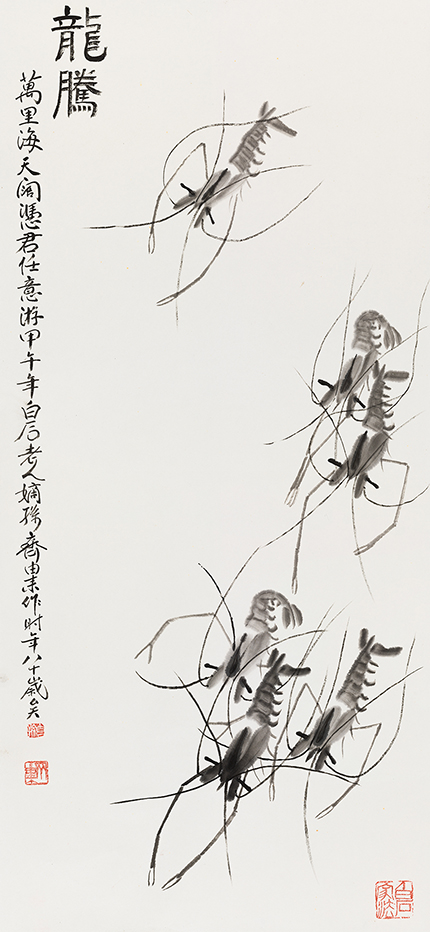 龍騰
萬里海天闊憑君任意游甲午年白石老人嫡孫齊由来作时年八十歲矣
白石家法